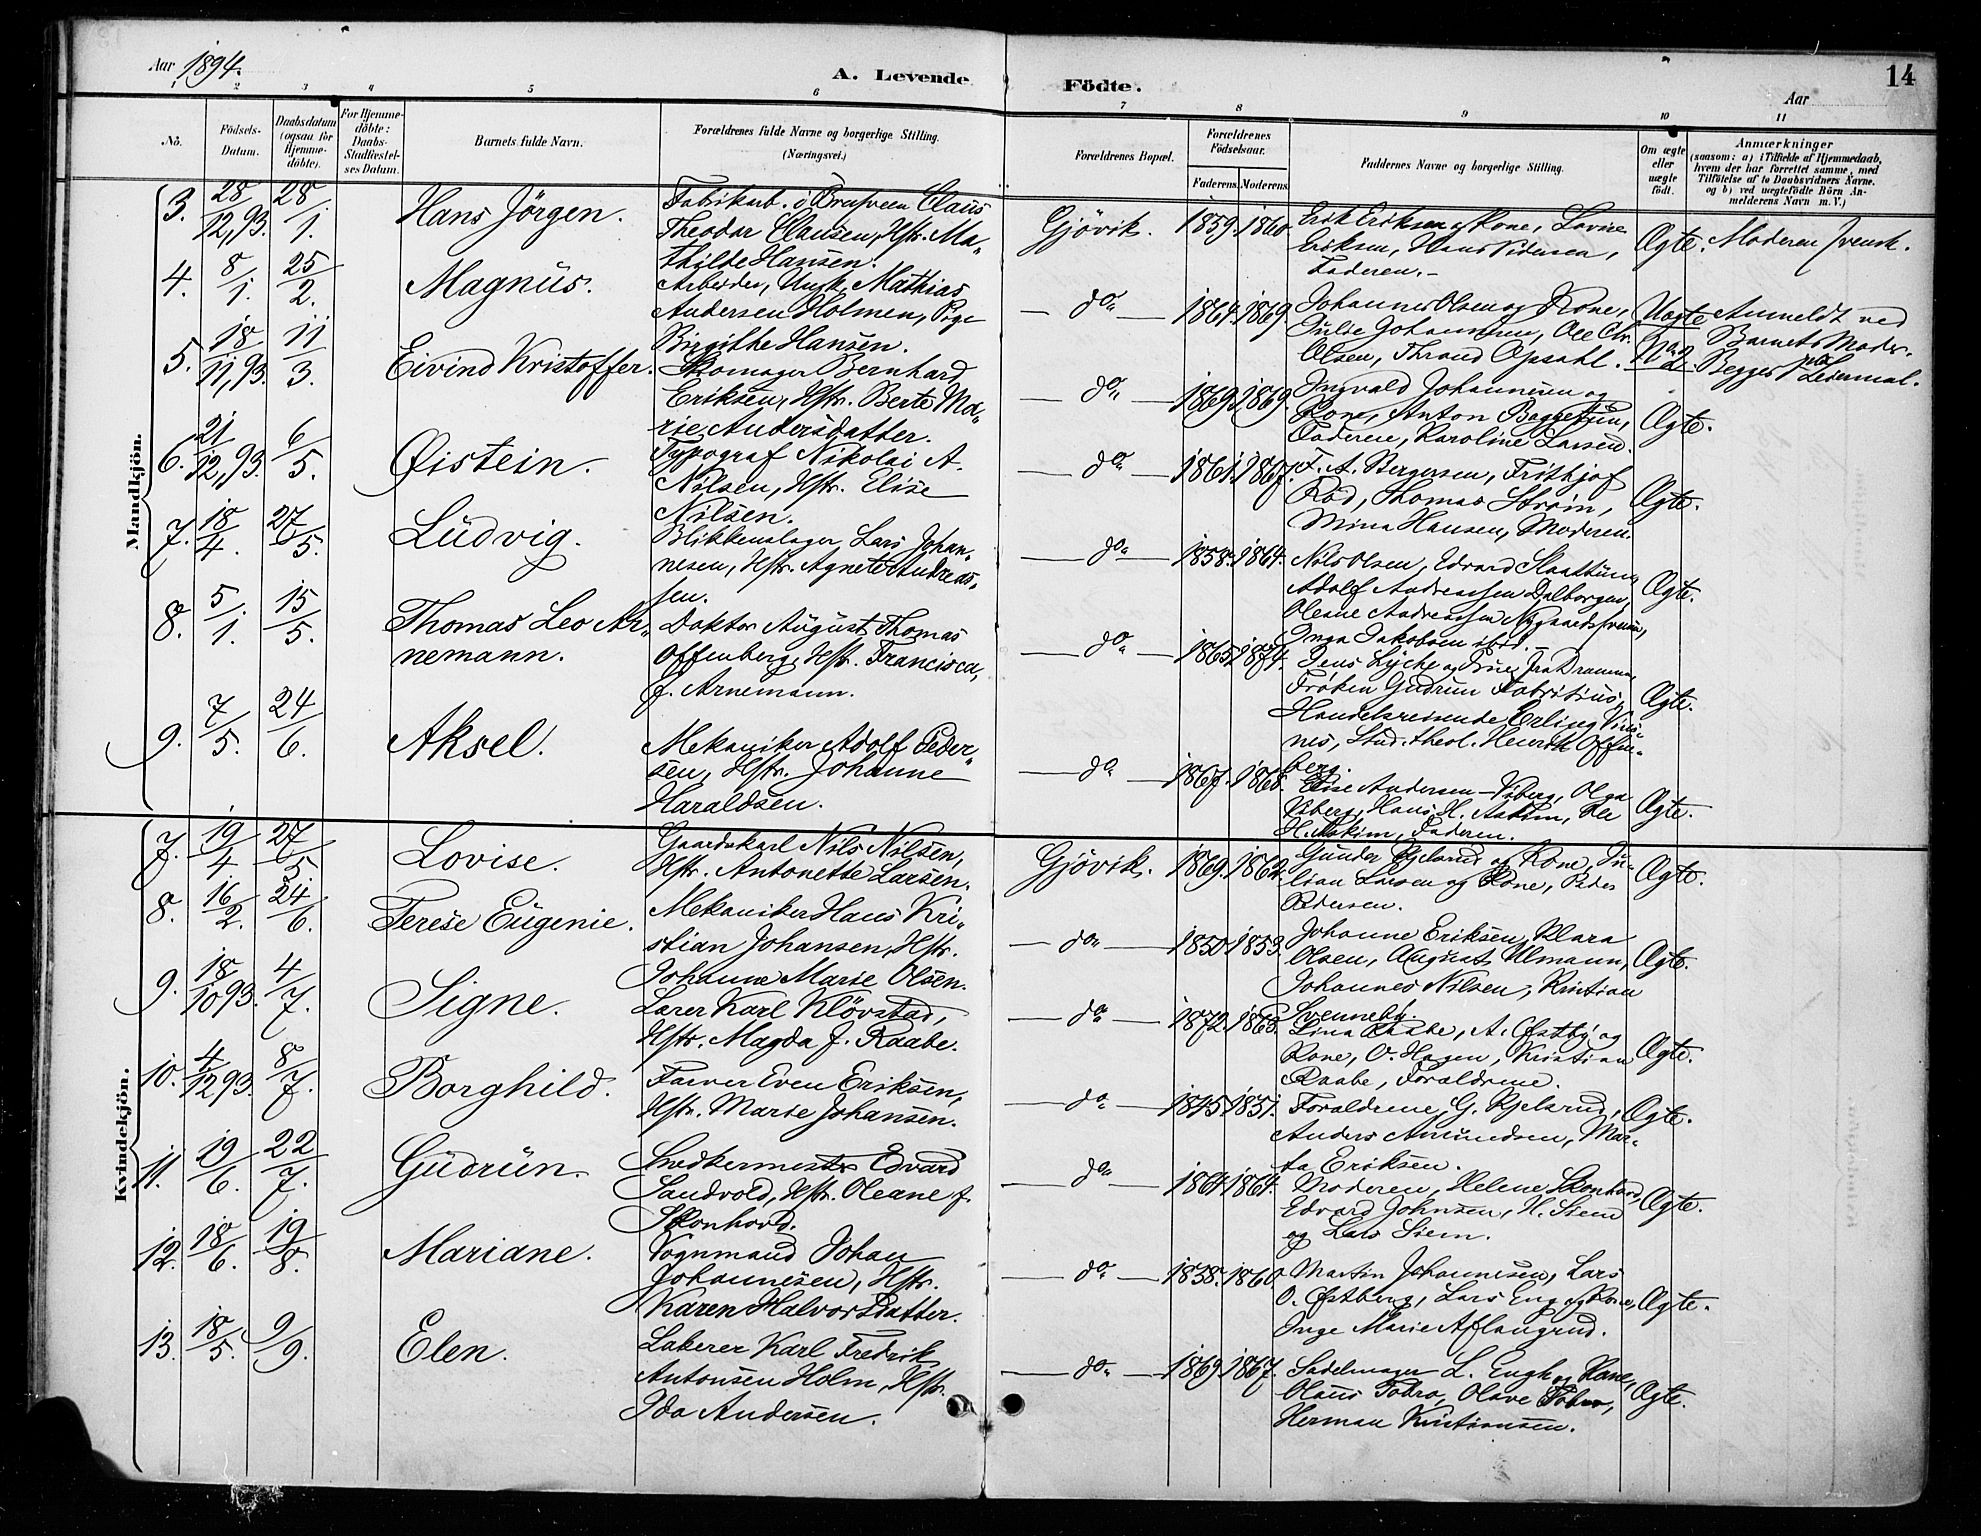 Aar 1894.
A. Levende
Födte.
Aar
14
1
2
3
4
5
6
7
8
9
10
11
No.
Födsels-Datum.
Daabsdatum (ogsaa for Hjemme-döbte).
For Hjemme-döbte: Daabs-Stadfæstel-ses Datum.
Barnets fulde Navn.
Forældrenes fulde Navne og borgerlige Stilling.
(Næringsvei.)
Forældrenes Bopæl.
Forældrenes Födselsaar.
Faderens.
Moderens.
Faddernes Navne og borgerlige Stilling.
Om ægte eller uægte födt.
Anmærkninger
(saasom: a) i Tilfælde af Hjemmedaab,
hvem der har forrettet samme, med
Tilföielse af to Daabsvidners Navne.
og b) ved uægtefödte Börn An-
melderens Navn m. V.)
Mandkjön.
3. 28/12,93. 28/1. Hans Jörgen.
Fabrikarb. i Claus
Theodor Clausen, Hstr. Ma-
thilde Hansen.
Gjövik. 1859. 1860.
Erik Eriksen og Kone, Lovise
Eriksen, Hans Pedersen,
Faderen.-
Ægte. Moderen svensk.
4. 8/1. 25/2. Magnus.
Arbeider, Ungk. Mathias
Andersen Holmen, Pige
Birgithe Hansen.
do 1864. 1869.
Johannes Olsen og Kone,
Julie Johannesen, Ole Chr.
Olsen, Thrond Opsahl.
Uægte No 2.
Anmeldt ved
Barnets Moder.
Begges Leiermaal.
5. 18/11,93. 11/3. Eivind Kristoffer.
Skomager Bernhard
Eriksen, Hstr. Berte Ma-
rie Andersdatter.
do 1869. 1869.
Ingvald Johannesen og
Kone, Anton
Faderen, Karoline Larsen.
Ægte.
6. 21/12,93. 6/5. Øistein.
Typograf Nikolai A.
Nilsen, Hstr. Elise
Nilsen.
do 1861. 1867.
F. A. Bergersen, Frithjof
Rød, Thomas Strøm,
Mina Hansen, Moderen.
Ægte.
7. 18/4. 27/5. Ludvig.
Blikkenslager Lars Johan-
nesen, Hstr. Agnete Andreas-
sen.
do 1858. 1864.
Nils Olsen, Edvard
Adolf Andreassen Dalborgen,
Oleane Andreassen
Inga Jakobsen ibd.
Ægte.
8. 5/1. 15/5. Thomas Leo Ar-
nemann.
Doktor August Thomas
Offenberg, Hstr. Francisca,
f. Arnemann.
do 1865. 1874.
Jens Lyche og Frue fra Drammen,
Frøken Gudrun Fabritius,
Handelsreisende Erling
nes, Stud. theol. Henrik Offen-
berg.
Ægte.
9. 7/5. 24/6. Aksel.
Mekaniker Adolf Peder-
sen, Hstr. Johanne
Haraldsen.
do 1867. 1868.
Elise Andersen Viberg, Olga
Viberg, Hans H. Askim, Ole
H. Askim, Faderen.
Ægte.
Kvindekjön.
7. 19/4 27/5. Lovise.
Gaardskarl Nils Nilsen,
Hstr. Antonette Larsen.
Gjövik. 1869. 1862.
Gunder Kjelsrud og Kone, Ju-
lian Larsen og Kone, Peder
Pedersen.
Ægte.
8. 16/2. 24/6. Terese Eugenie.
Mekaniker Hans Kri-
stian Johansen, Hstr.
Johanne Marie Olsen.
do 1850. 1853.
Johanne Eriksen, Klara
Olsen, August Ulmann,
Johannes Nilsen, Kristian
Svenneby.
Ægte.
9. 18/10 93. 4/7. Signe.
Lærer Karl Klövstad,
Hstr. Magda f. Raabe.
do 1872. 1863.
Lina Raabe, A. Østby og
Kone, O. Hagen, Kristian
Raabe, Forældrene.
Ægte.
10. 4/12 93. 8/7. Borghild.
Farver Even Eriksen,
Hstr. Marie Johansen.
do 1845. 1851.
Forældrene, G. Kjelsrud,
Anders Amundsen, Mar-
ta Eriksen.
Ægte.
11. 19/6. 22/7. Gudrun.
Snedkermester Edvard
Sandvold, Hstr. Oleane f.
Skonhovd.
do 1864. 1864.
Moderen, Helene Skonhovd,
Edvard Johnsen, H. Siem
og Lars Siem.
Ægte.
12. 18/6. 19/8. Mariane.
Vognmand Johan
Johannesen, Hstr.
Karen Halvorsdatter.
do 1858. 1860.
Martin Johannesen, Lars
O. Østberg, Lars Eng og Kone,
Inge Marie Aflangrud.
Ægte.
13. 18/5. 9/9. Elen.
Lakerer Karl Fredrik
Antonsen Holm, Hstr.
Ida Andersen.
do 1869. 1867.
Sadelmager L. Engh og Kone,
Olaus Fobro, Olave Fobro,
Herman Kristiansen.
Ægte.